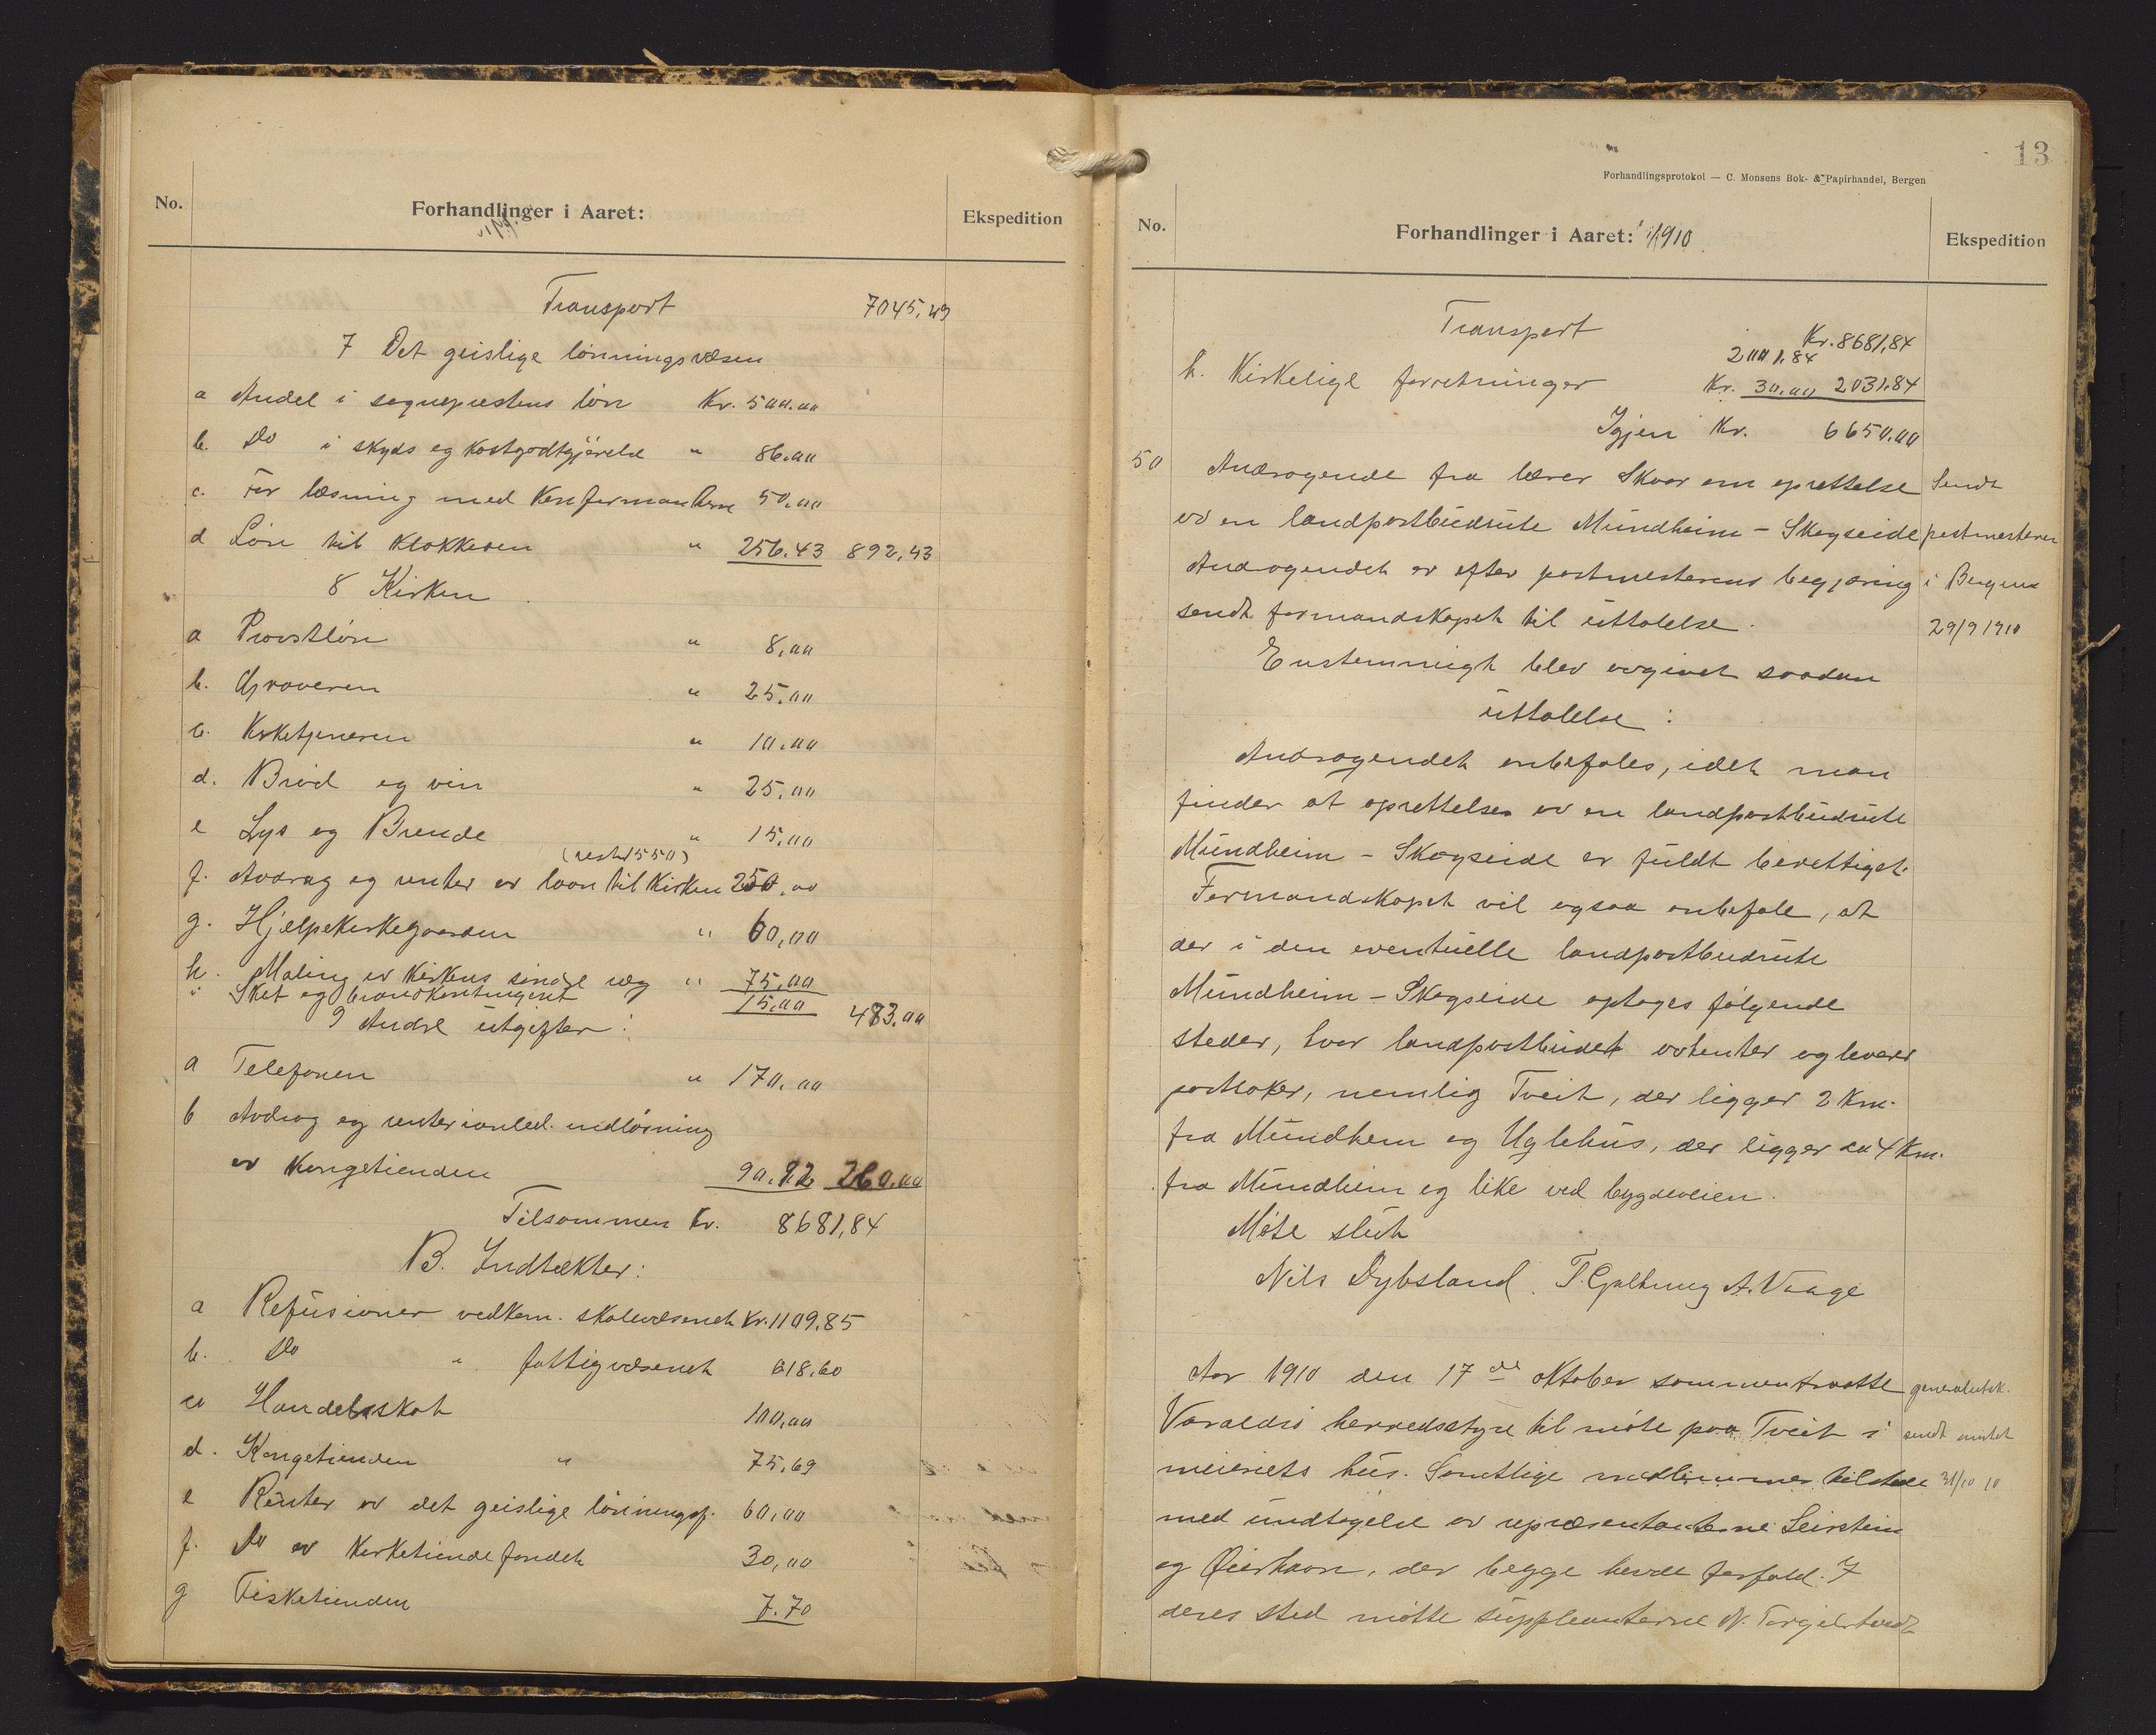 No.
Forhandlinger i Aaret:
Ekspedition
Transport 7045,49
7 Det geislige lönningsvæsen
a Andel i sogneprestens lön Kr. 500.00
b. Do i skyds og kostgodtgjörelse " 86.00
c. For læsning med Konfirmanterne 50.00
d Lön til klokkeren " 256.43 892,43
8 Kirken
a Provstlön " 8,00
b. Graveren " 25.00
c. Kirketjeneren " 10.00
d. Bröd og vin " 25.00
e Lys og Brende " 15.00
(rest 1550)
f. Avdrag og renter av laan til Kirken 250.00
g. Hjelpekirkegaarden " 60,00
h. Maling av Kirkens söndre væg " 75.00
i Skat og brandkontingent 15,00 483.00
9 Andre utgifter:
a Telefonen " 170.00
b Avdrag og renter i anled. indlösning
av Kongetienden 90.92 260.00
Tilsammen Kr. 8681,84
B. Indtækter:
a Refusioner vedkom. skolevæsenet Kr. 1109.85
b. Do " fattigvæsenet 618.60
c Handelsskat 100,00
d. Kongetienden " 75.69
e Renter av det geislige lönningsf. 60,00
f. Do av Kirketiendefondet 30,00
g Fisketienden 7.70
13
Forhandlingsprotokol — C. Monsens Bok- & Papirhandel, Bergen
No.
Forhandlinger i Aaret: 1910
Ekspedition
Transport Kr. 8681,84
2001.84
h. Kirkelige forretninger Kr. 30.00 2031.84
Igjen Kr. 6650.00
50 Andragende fra lærer Skaar om oprettelse Sendt
av en landpostbudrute Mundheim - Skogseide postmesteren
Andragendet er efter postmesterens begjæring i Bergen
sendt formandskapet til uttalelse. 29/9 1910
Enstemmigt blev avgivet saadan
uttalelse:
Andragendet anbefales, idet man
finder at oprettelsen av en landpostbudrute
Mundheim - Skogseide er fuldt berettiget.
Formandskapet vil ogsaa anbefale, at
der i den eventuelle landpostbudrute
Mundheim - Skogseide optages fölgende
steder, hvor landpostbudet avhenter og leverer
postsaker, nemlig Tveit, der ligger 2 Km.
fra Mundhem og Uglehus, der ligger ca 4 Km.
fra Mundheim og like ved bygdeveien.
Möte slut
Nils Dybsland. T. Galtung A. Vaage
Aar 1910 den 17de oktober sammentraatte generalutsk.
Varaldsö herredsstyre til möte paa Tveit i sendt amtet
meieriets hus. Samtlige medlemmer tilstede 31/10 10
med undtagelse av repræsentanterne Leirstein
og Øierhavn, der begge havde forfald. I
deres sted mötte suppleanterne N. Torgilstveit